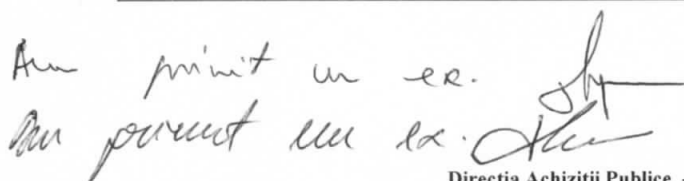 Am primit un ex.
Am primit un ex.
Direcția Achiziții Publice